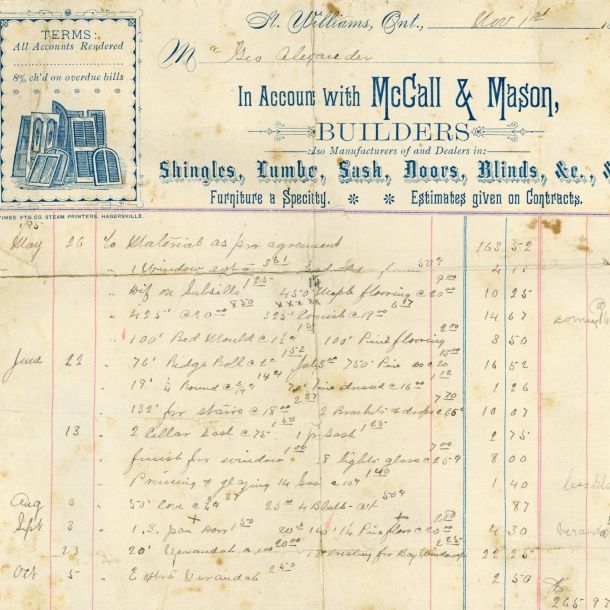 TERMS:
All Accounts Rendered
8% ch'd on overdue bills
St. Williams, Ont., Nov 1st
Mr Geo Alexander
In Accoun with McCall & Mason,
BUILDERS
:lso Manufacturers of and Dealers in:
Shingles, Lumbe, Sash, Doors, Blinds, &c., &
Furniture a Specilty. * * Estimates given on Contracts.
TIMES PTG CO. STEAM PRINTERS, HAGERSVILLE.
195
May 26 to Material as per agreement 163 52
" 1 Window 3 61 50 4 11
" Dif on Subsills 1 25 450' Maple flooring @ 20 00 9 00 10 25
" 425' @ 20 00 8 50 325' @ 19 00 6 17 14 67
" 100' Bed Mould @ 1 50 100' Pine flooring 2 00 3 50
June 22 " 76' Ridge Roll @ 2 1 52 750' Pine @ 20 15 00 16 52
" 19' 1/4 Round @ 14 Pine dressed @ 16 00 1 12 1 26
" 132' for stairs @ 18 00 2 37 2 Brackets & drops 7 70 10 07
13 " 2 Cellar Sash @ 75 1 50 1 pr Sash 1 25 2 75
finish for window 1 00 8 lights glass @ 7 00 8 00
" Priming & glazing 14 @ 10 1 40 1 40
Aug 3 " 50' Cove @ 37 50 87
Sept 3 " Door 1 50 140' 1/4 Pine floor @ 20 00 2 80 4 30
23 " 20' Verandah @ 20 00 Cresting for Bay Window 2 25 22 25
Oct 5 " Extra Verandah 2 50 2 50
265 97